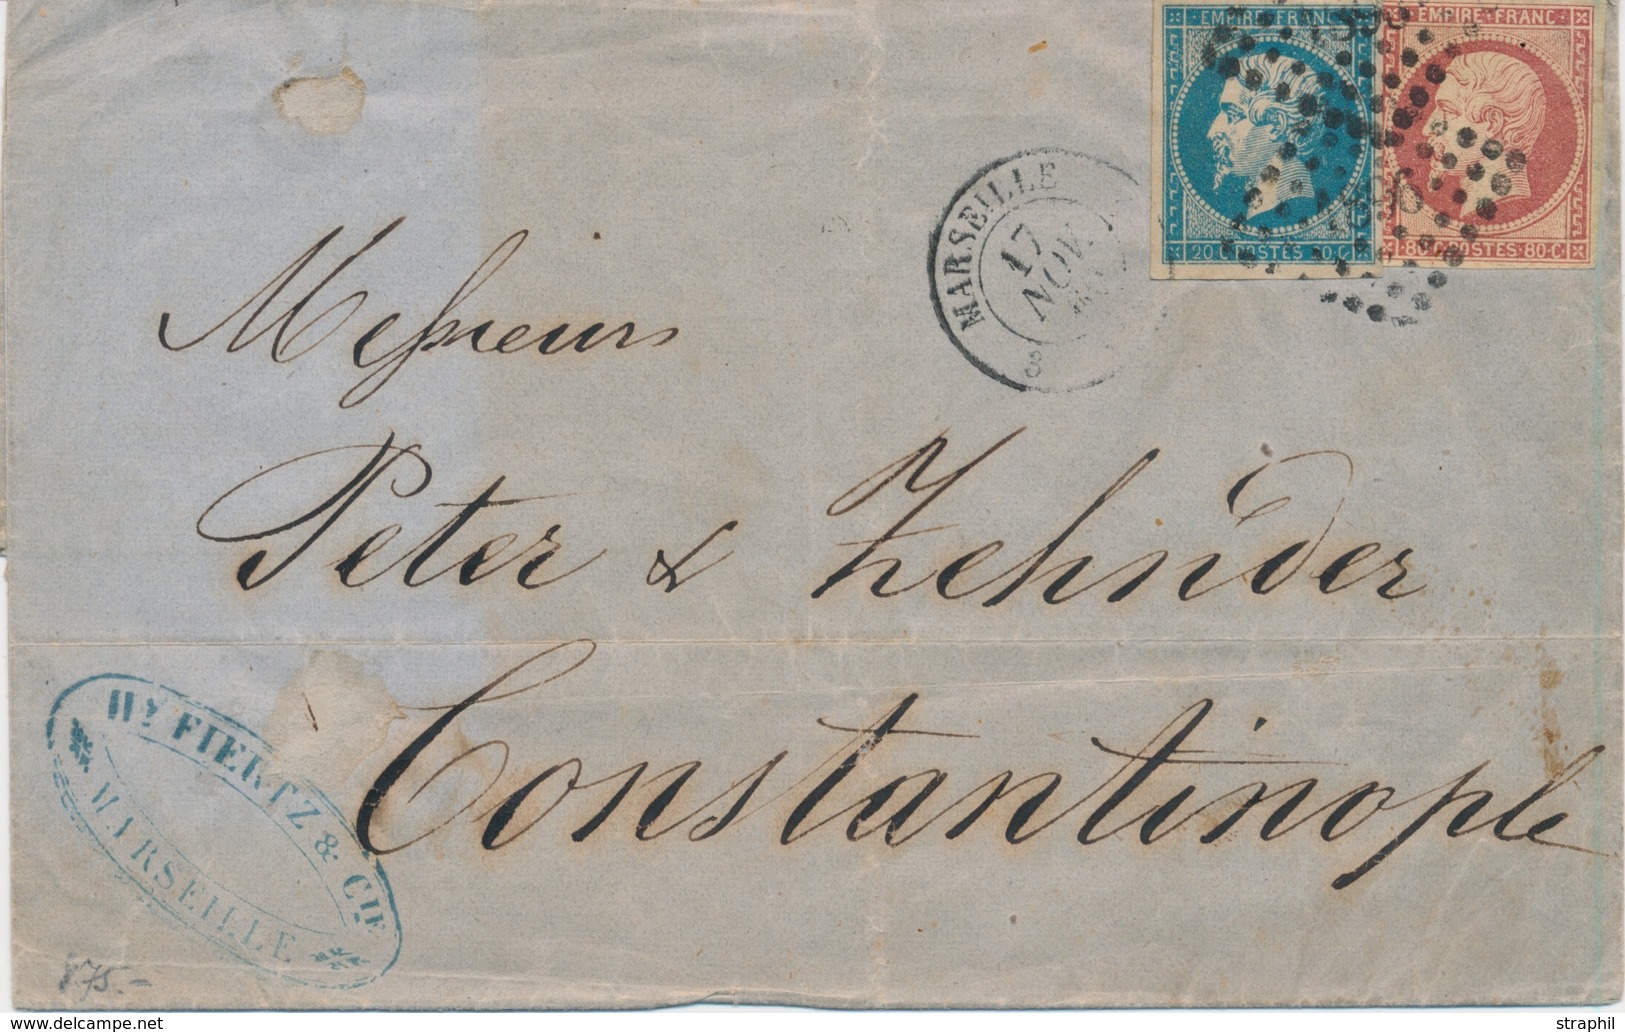 EMPIRE FRANC
EMPIRE FRANC
20 C POSTES 20 C
80 C POSTES 80 C
MARSEILLE
17
NOV.
3
Messieurs
Peter & Zehnder
Constantinople
Hy FIERTZ & CIE
MARSEILLE
875.-
straphil